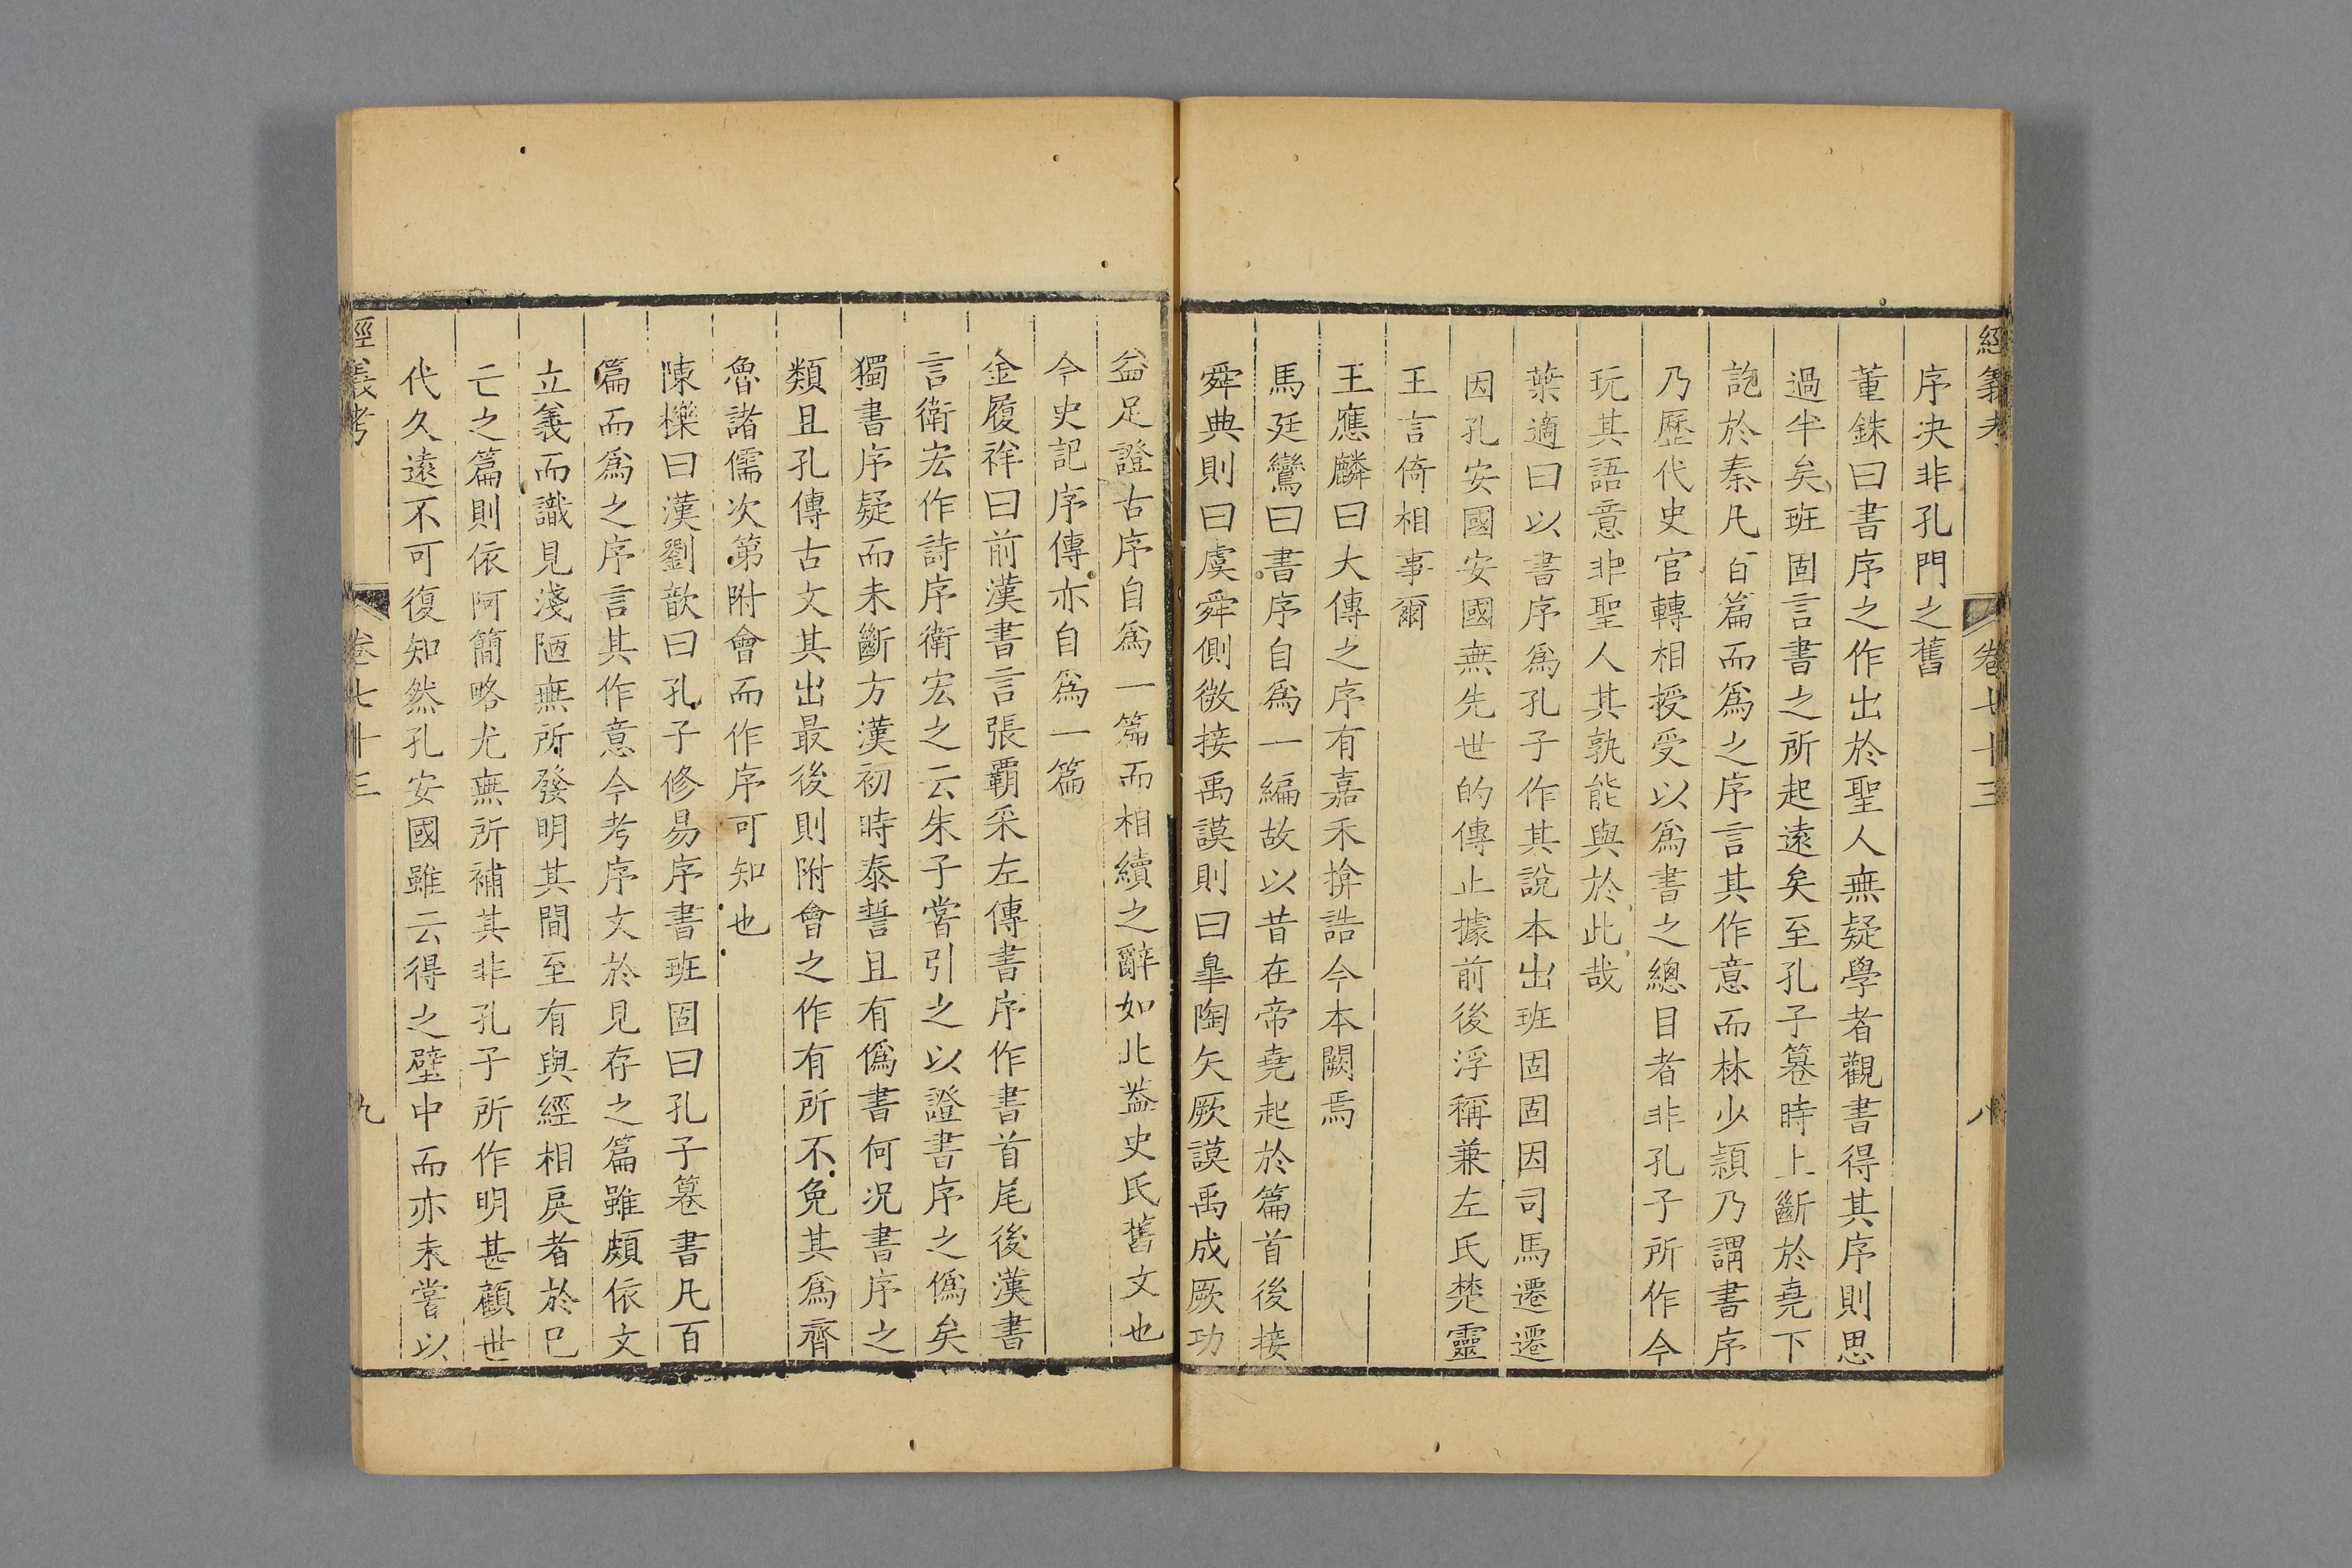 經義考 卷七十三 八
序决非孔門之舊
董銖曰書序之作出於聖人無疑學者觀書得其序則思
過半矣班固言書之所起遠矣至孔子篹時上斷於堯下
訖於秦凡百篇而爲之序言其作意而林少穎乃謂書序
乃歷代史官轉相授受以爲書之總目者非孔子所作今
玩其語意非聖人其孰能與於此哉
葉適曰以書序爲孔子作其說本出班固固因司馬遷遷
因孔安國安國無先世的傳止據前後浮稱兼左氏楚靈
王言倚相事爾
王應麟曰大傳之序有嘉禾揜誥今本闕焉
馬廷鸞曰書序自爲一編故以昔在帝堯起於篇首後接
舜典則曰虞舜側微接禹謨則曰皐陶矢厥謨禹成厥功
益足證古序自爲一篇而相續之辭如此葢史氏舊文也
今史記序傳亦自爲一篇
金履祥曰前漢書言張霸采左傳書序作書首尾後漢書
言衛宏作詩序衛宏之云朱子嘗引之以證書序之僞矣
獨書序疑而未斷方漢初時泰誓且有僞書何况書序之
類且孔傳古文其出最後則附會之作有所不免其爲齊
魯諸儒次第附會而作序可知也
陳櫟曰漢劉歆曰孔子修易序書班固曰孔子篹書凡百
篇而爲之序言其作意今考序文於見存之篇雖頗依文
立義而識見淺陋無所發明其間至有與經相戾者於巳
亡之篇則依阿簡略尤無所補其非孔子所作明甚顧世
代久遠不可復知然孔安國雖云得之壁中而亦未嘗以
經義考 卷七十三 九